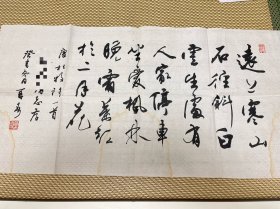 遠上寒山
石徑斜白
雲生處有
人家停車
坐愛楓林
晚霜葉紅
於二月花
唐杜牧詩一首